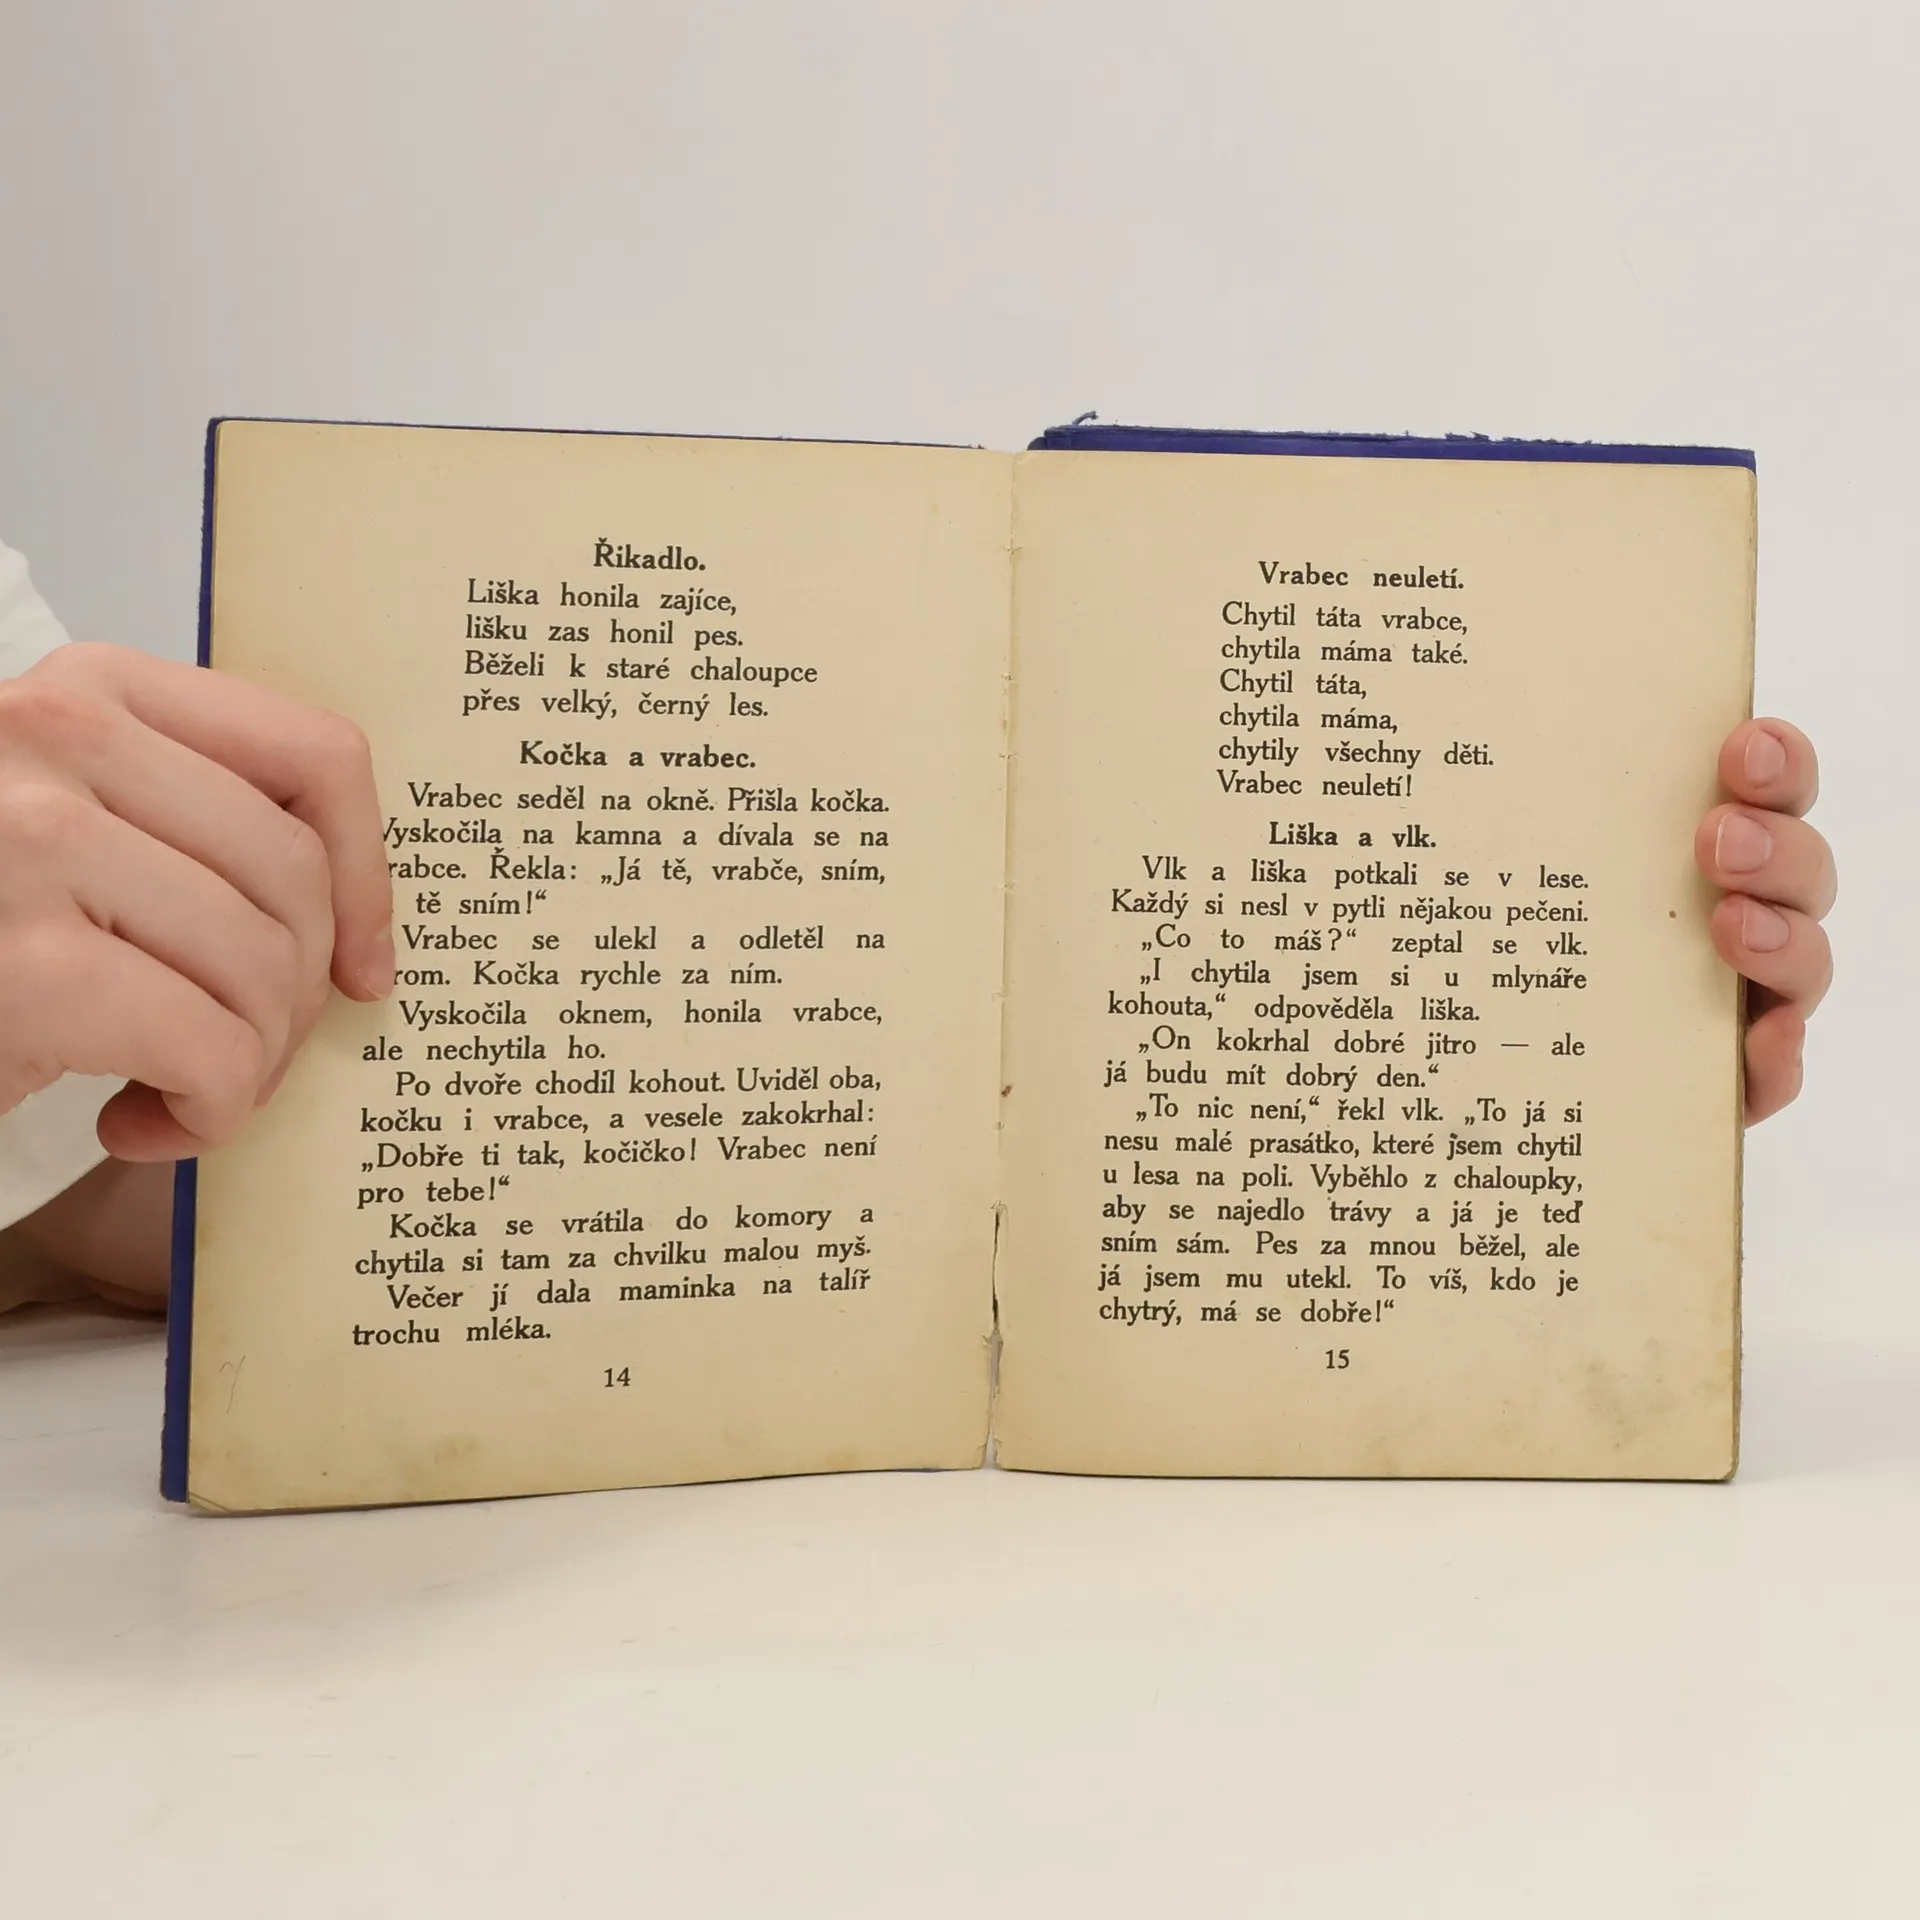 Řikadlo.
Liška honila zajíce,
lišku zas honil pes.
Běželi k staré chaloupce
přes velký, černý les.
Kočka a vrabec.
Vrabec seděl na okně. Přišla kočka.
Vyskočila na kamna a dívala se na
rabce. Řekla: „Já tě, vrabče, sním,
tě sním!“
Vrabec se ulekl a odletěl na
rom. Kočka rychle za ním.
Vyskočila oknem, honila vrabce,
ale nechytila ho.
Po dvoře chodil kohout. Uviděl oba,
kočku i vrabce, a vesele zakokrhal:
„Dobře ti tak, kočičko! Vrabec není
pro tebe!“
Kočka se vrátila do komory a
chytila si tam za chvilku malou myš.
Večer jí dala maminka na talíř
trochu mléka.
14
Vrabec neuletí.
Chytil táta vrabce,
chytila máma také.
Chytil táta,
chytila máma,
chytily všechny děti.
Vrabec neuletí!
Liška a vlk.
Vlk a liška potkali se v lese.
Každý si nesl v pytli nějakou pečeni.
„Co to máš?“ zeptal se vlk.
„I chytila jsem si u mlynáře
kohouta,“ odpověděla liška.
„On kokrhal dobré jitro — ale
já budu mít dobrý den.“
„To nic není,“ řekl vlk. „To já si
nesu malé prasátko, které jsem chytil
u lesa na poli. Vyběhlo z chaloupky,
aby se najedlo trávy a já je teď
sním sám. Pes za mnou běžel, ale
já jsem mu utekl. To víš, kdo je
chytrý, má se dobře!“
15